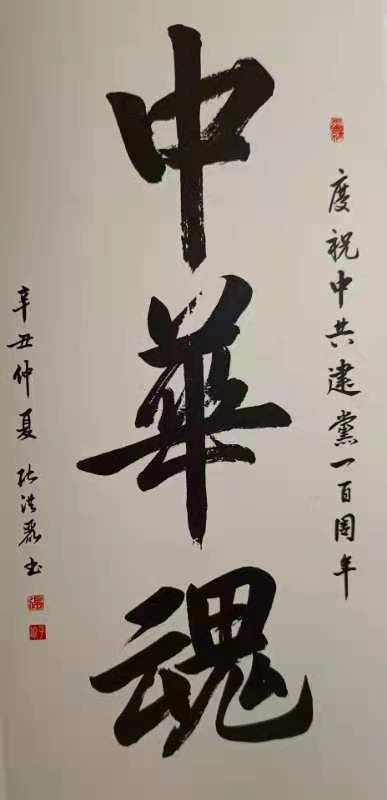 慶祝中共建黨一百周年
中華魂
辛丑仲夏 张洪书